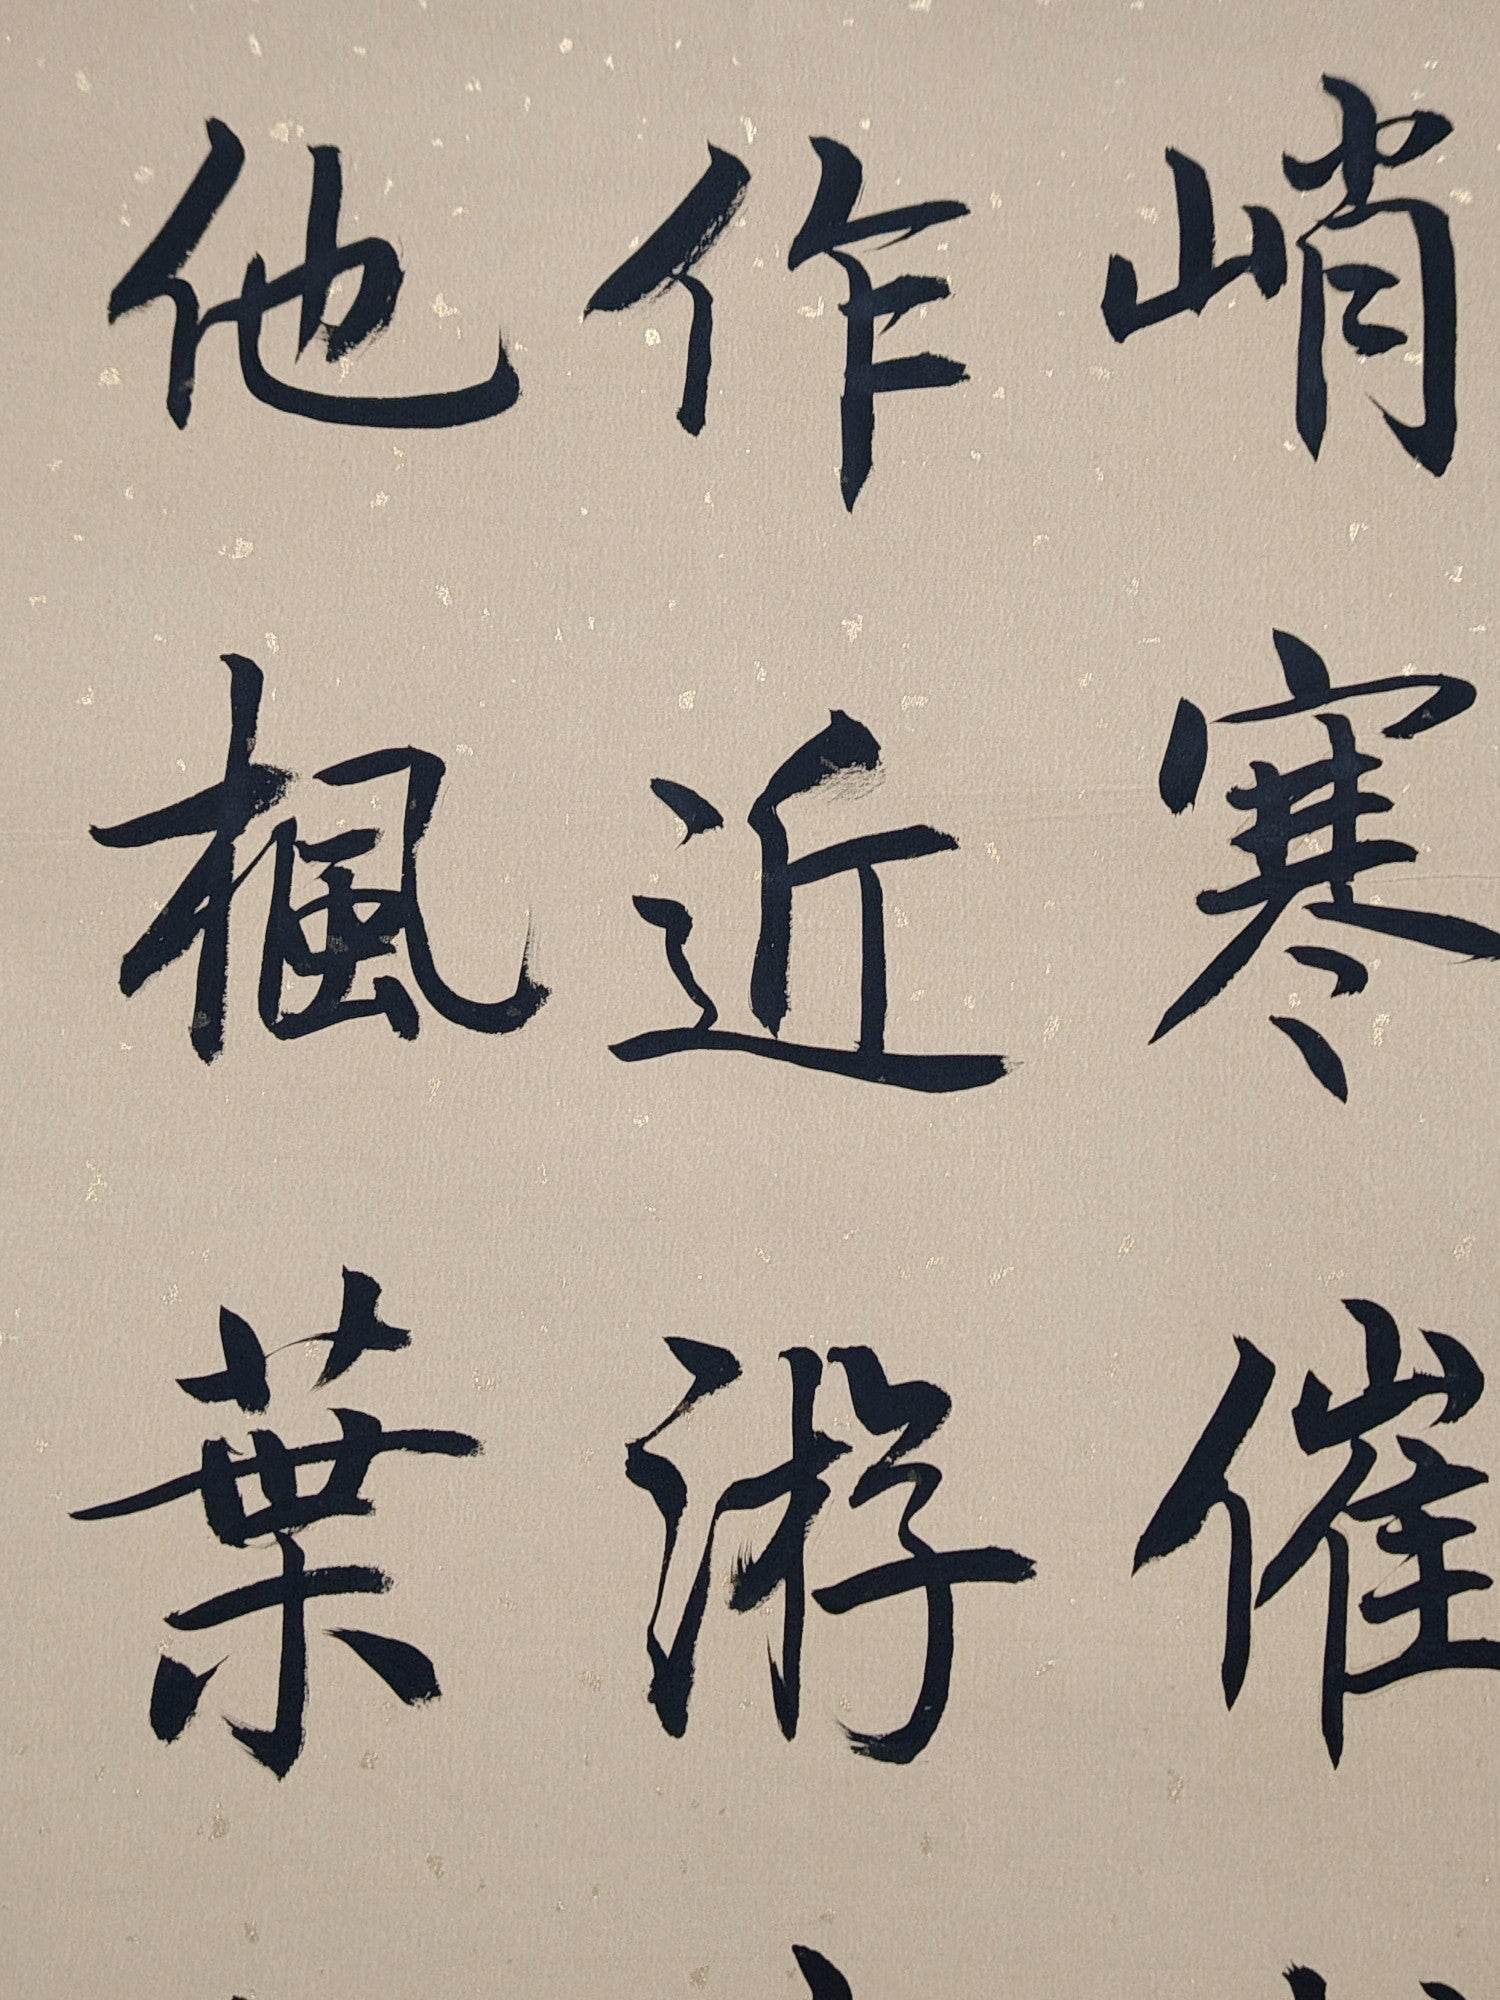 峭寒催
作近游
他楓葉